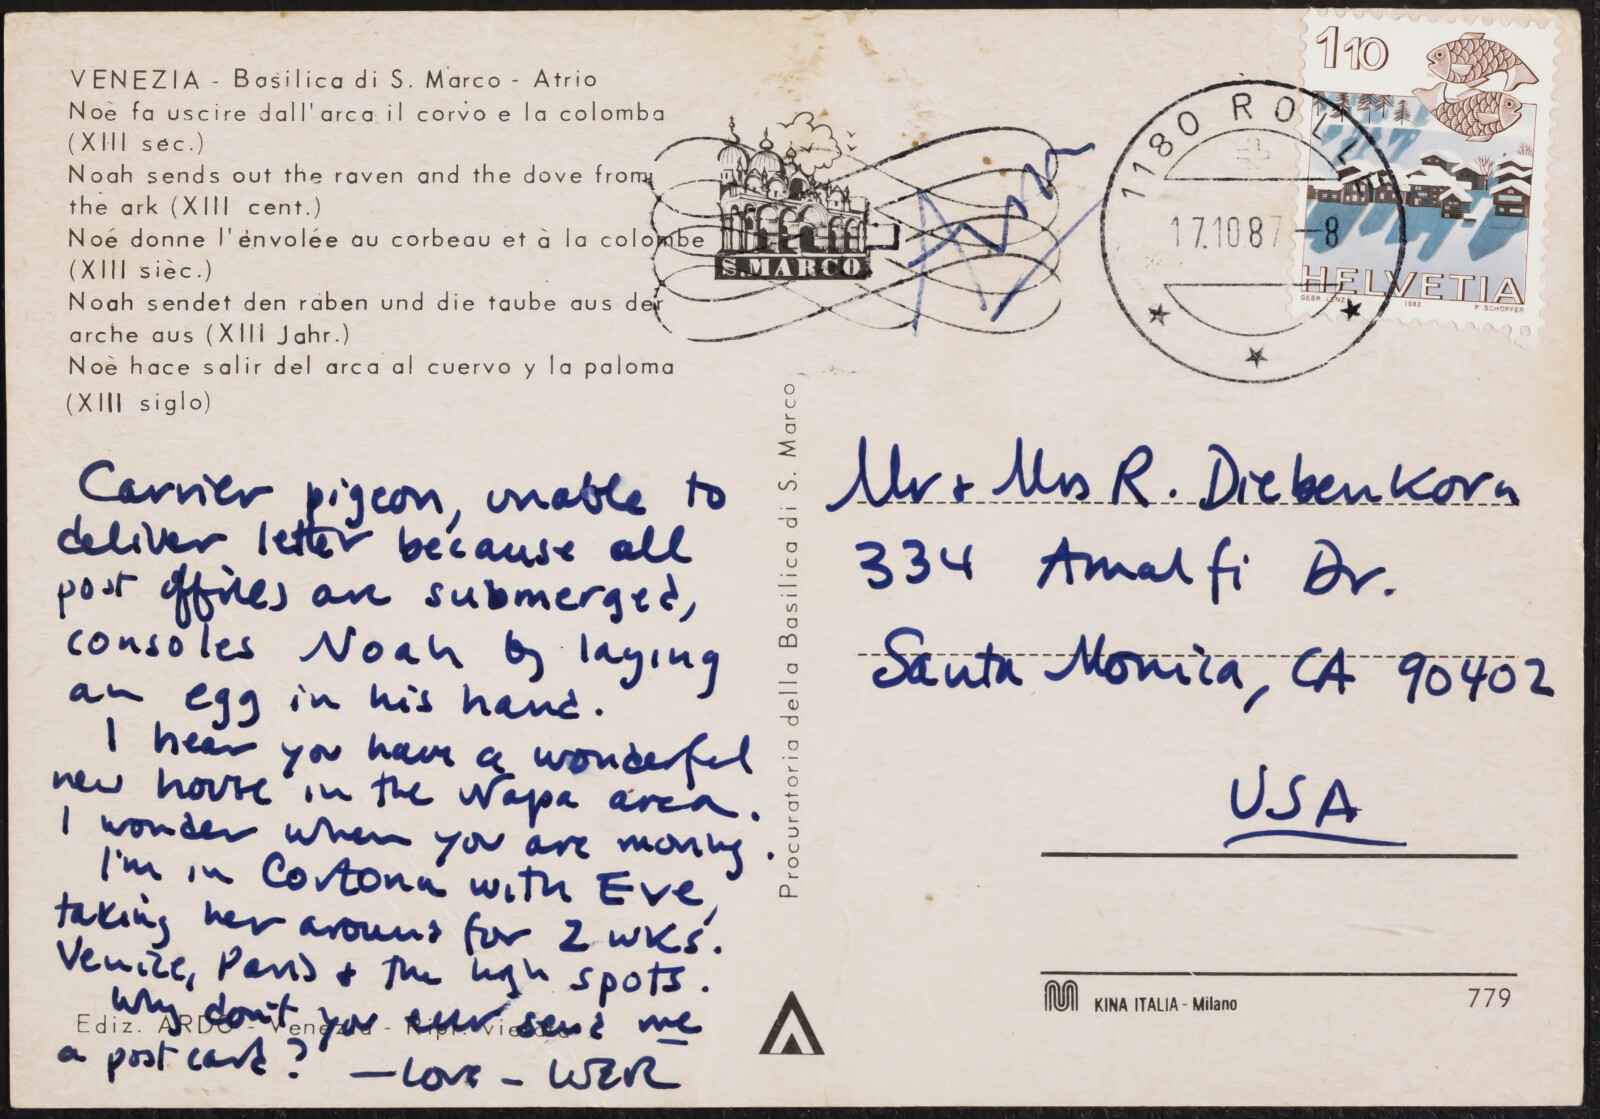 VENEZIA - Basilica di S. Marco - Atrio
Noè fa uscire dall'arca il corvo e la colomba
(XIII sec.)
Noah sends out the raven and the dove from
the ark (XIII cent.)
Noé donne l'énvolée au corbeau et à la colombe
(XIII sièc.)
Noah sendet den raben und die taube aus der
arche aus (XIII Jahr.)
Noè hace salir del arca al cuervo y la paloma
(XIII siglo)
S. MARCO
Air
1180 ROLLE
17.10.87-8
110
HELVETIA
GEBR. LENZ 1983 P. SCHOPFER
Carrier pigeon, unable to
deliver letter because all
post offices are submerged,
consoles Noah by laying
an egg in his hand.
I hear you have a wonderful
new house in the Napa area.
I wonder when you are moving.
I'm in Cortona with Eve,
taking her around for 2 wks.
Venice, Paris + the high spots.
Why don't you ever send me
a post card? — Love - WER
Ediz. ARDO - Venezia - Ripr. vietata
Procuratoria della Basilica di S. Marco
Mr + Mrs R. Diebenkorn
334 Amalfi Dr.
Santa Monica, CA 90402
USA
KINA ITALIA - Milano
779